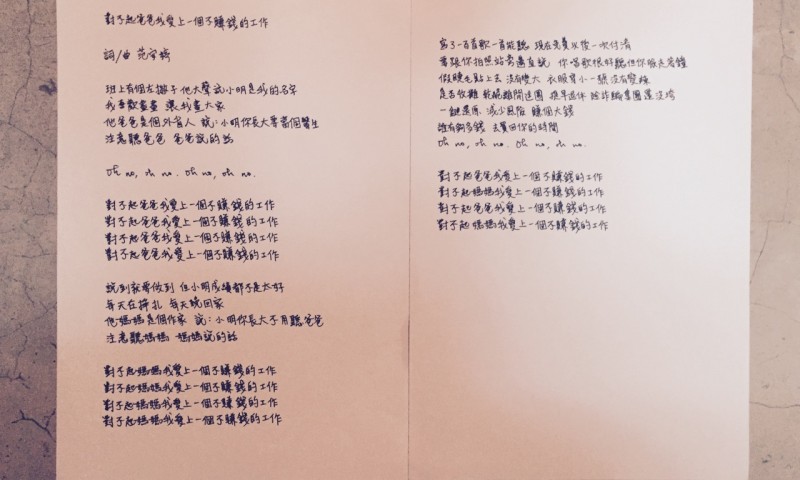 對不起爸爸我愛上一個不賺錢的工作
詞/曲
班上有個左撇子 他大聲說小明是我的名字
我喜歡畫畫 還我畫大家
他爸爸是個外省人 說:小明你長大要當個醫生
注意聽爸爸 爸爸說的話
Oh no, oh no. Oh no, oh no.
對不起爸爸我愛上一個不賺錢的工作
對不起爸爸我愛上一個不賺錢的工作
對不起爸爸我愛上一個不賺錢的工作
對不起爸爸我愛上一個不賺錢的工作
說到就要做到 但小明成績都不是太好
每天在掙扎 每天晚回家
他媽媽是個作家 說:小明你長大不用聽爸爸
注意聽媽媽 媽媽說的話
對不起媽媽我愛上一個不賺錢的工作
對不起媽媽我愛上一個不賺錢的工作
對不起媽媽我愛上一個不賺錢的工作
對不起媽媽我愛上一個不賺錢的工作
寫了一百首歌 一首能聽 現在免費以後一次付清
當跟你拍照站旁邊直說 你唱歌很好聽但你腿走音鐘
假睫毛貼上去 沒有變大 衣服穿小一號沒有變瘦
是否收攤 乾脆離開這圈 提早退休
一鍵還原 減少風險 賺個大錢
誰有夠多錢 去買回你的時間
Oh no, oh no. Oh no, oh no.
對不起爸爸我愛上一個不賺錢的工作
對不起媽媽我愛上一個不賺錢的工作
對不起爸爸我愛上一個不賺錢的工作
對不起媽媽我愛上一個不賺錢的工作